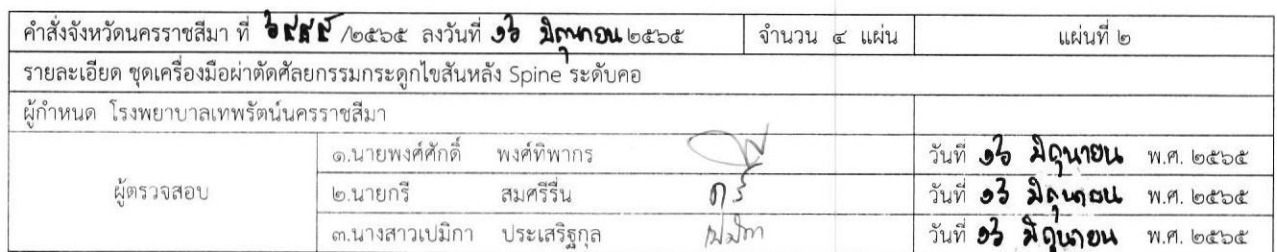 คำสั่งจังหวัดนครราชสีมา ที่ ๖๙๙๕ /๒๕๖๕ ลงวันที่ ๑๖ มิถุนายน ๒๕๖๕ จำนวน ๔ แผ่น แผ่นที่ ๒
รายละเอียด ชุดเครื่องมือผ่าตัดศัลยกรรมกระดูกไขสันหลัง Spine ระดับคอ
ผู้กำหนด โรงพยาบาลเทพรัตน์นครราชสีมา
๑.นายพงศ์ศักดิ์ พงศ์ทิพากร วันที่ ๑๖ มิถุนายน พ.ศ. ๒๕๖๕
ผู้ตรวจสอบ ๒.นายกรี สมศรีรื่น กรี วันที่ ๑๖ มิถุนายน พ.ศ. ๒๕๖๕
๓.นางสาวเปมิกา ประเสริฐกุล เปมิกา วันที่ ๑๖ มิถุนายน พ.ศ. ๒๕๖๕